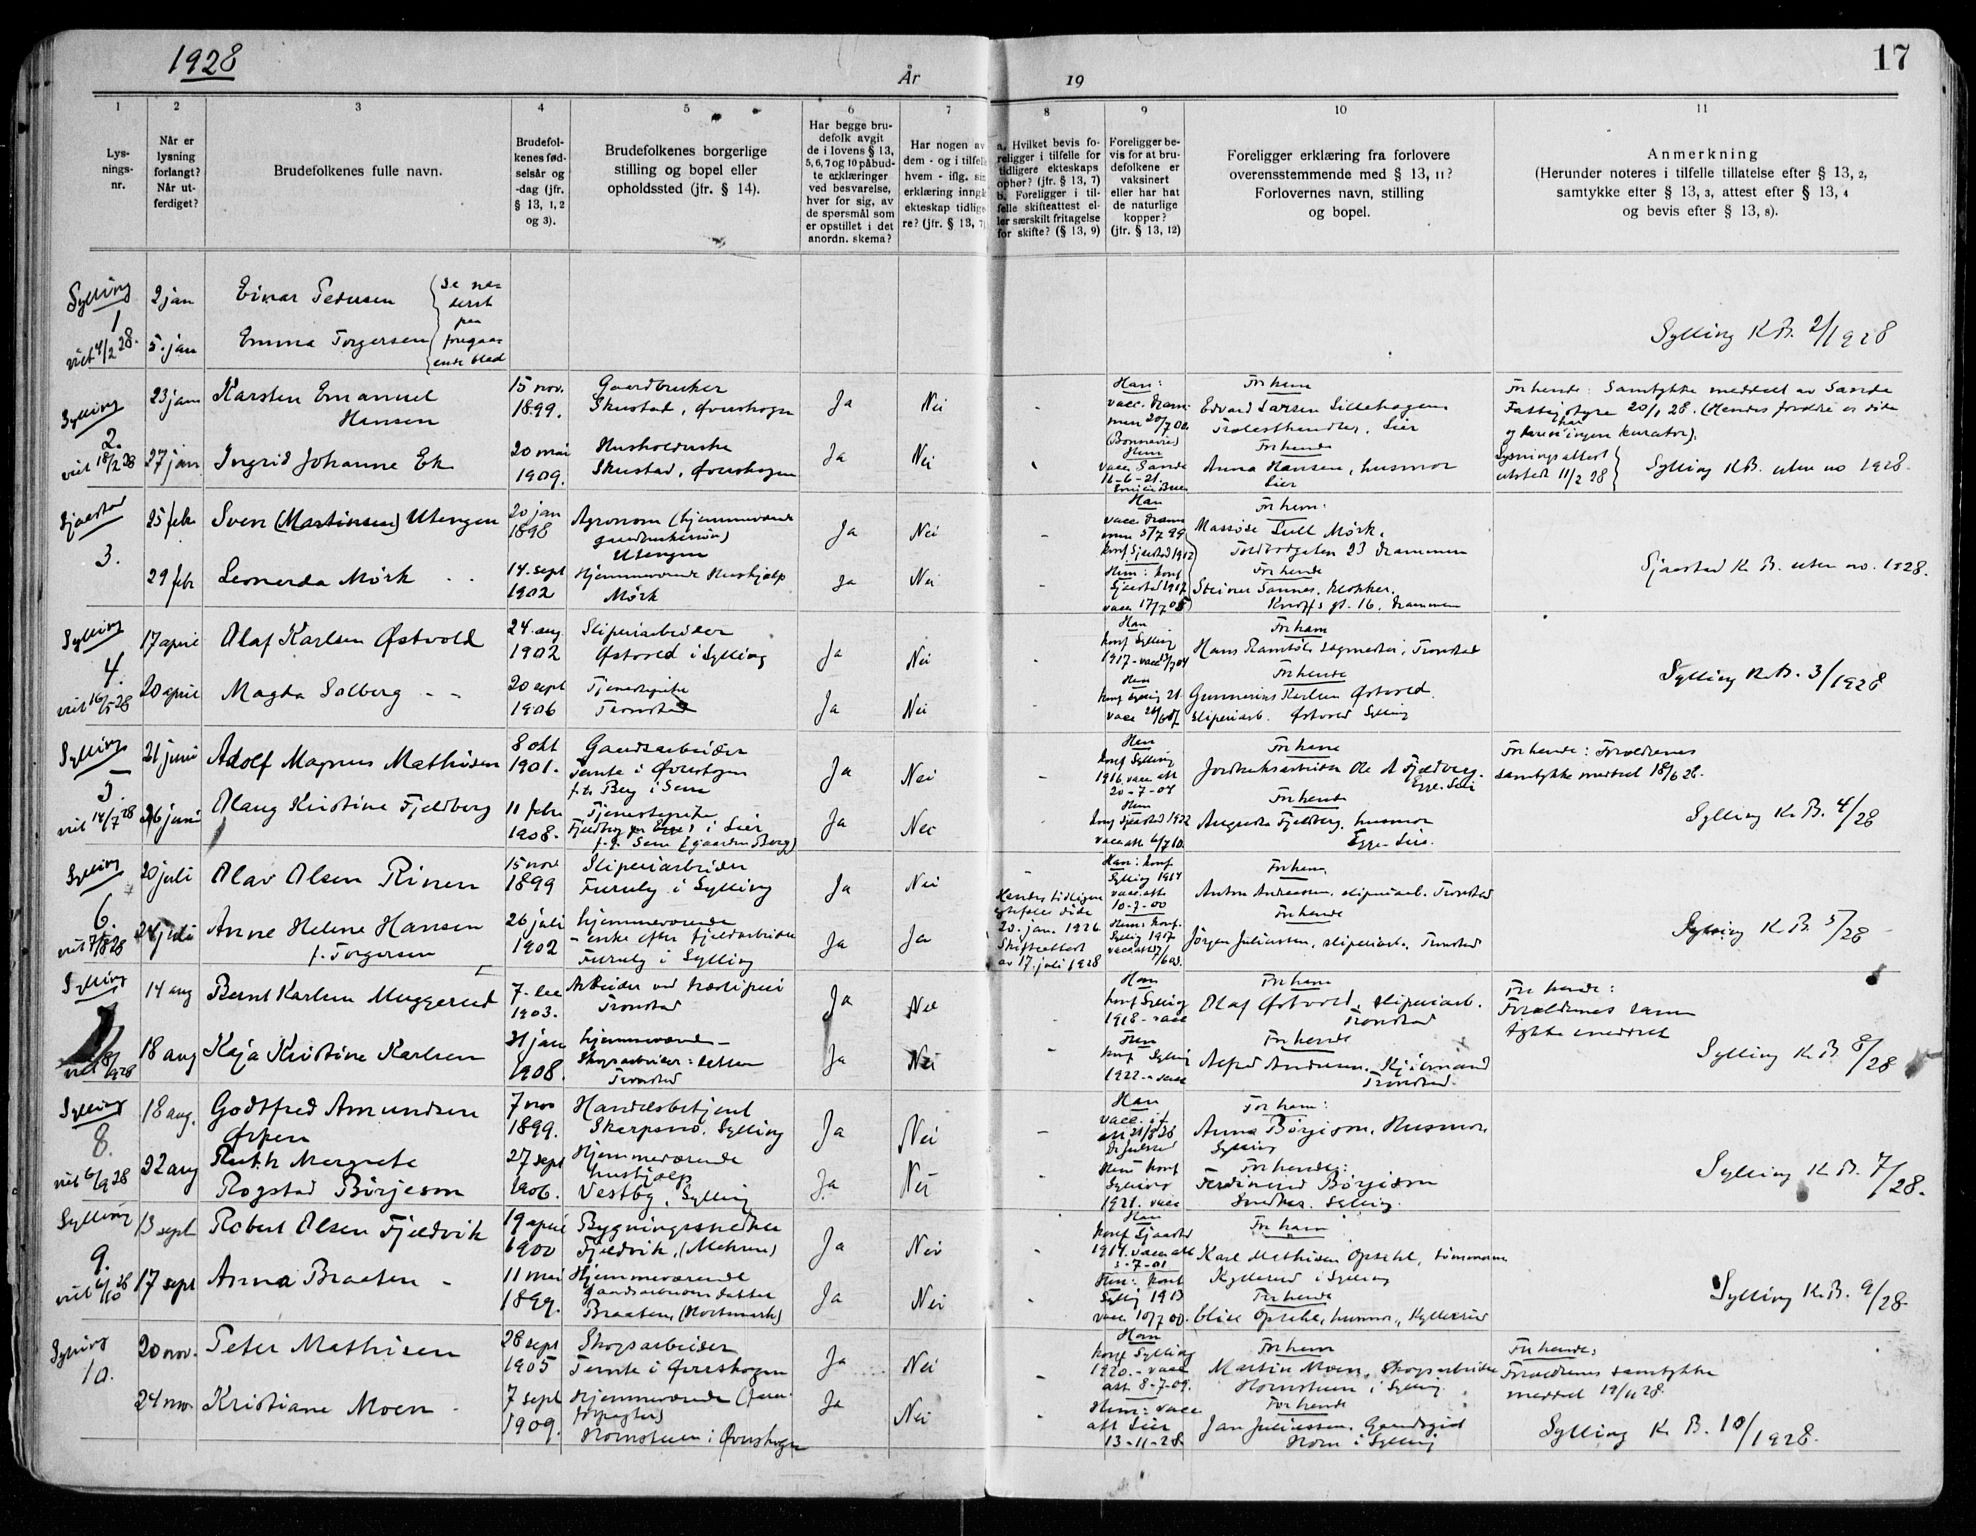 1928
År
19
17
1
2
3
4
5
6
7
8
9
10
11
Lys-
nings-
nr.
Når er
lysning
forlangt?
Når ut-
ferdiget?
Brudefolkenes fulle navn.
Brudefol-
kenes fød-
selsår og
-dag (jfr.
§ 13, 1, 2
og 3).
Brudefolkenes borgerlige
stilling og bopel eller
opholdssted (jfr. § 14).
Har begge bru-
defolk avgit
de i lovens § 13,
5, 6, 7 og 10 påbud-
te erklæringer
ved besvarelse,
hver for sig, av
de spørsmål som
er opstillet i det
anordn. skema?
Har nogen av
dem - og i tilfelle
hvem - iflg. sin
erklæring inngk
ekteskap tidlige
re? (jfr. § 13, 7)
a. Hvilket bevis fo-
religger i tilfelle for
tidligere ekteskaps
ophør? (jfr. § 13, 7)
b. Foreligger i til-
felle skifteattest el-
ler særskilt fritagelse
for skifte? (§ 13, 9)
Foreligger be-
vis for at bru-
defolkene er
vaksinert
eller har hat
de naturlige
kopper?
(jfr. § 13, 12)
Foreligger erklæring fra forlovere
overensstemmende med § 13, 11?
Forlovernes navn, stilling
og bopel.
Anmerkning
(Herunder noteres i tilfelle tillatelse efter § 13, 2,
samtykke efter § 13, 3, attest efter § 13, 4
og bevis efter § 13, 8).
Sylling
1
viet 4/2 28.
2 jan
5. jan
Einar Pedersen
Emma Torgersen
Se ne-
derst
paa
foregaa-
ende blad
Sylling K.B. 2/1928
Sylling
2.
viet 18/2 28
23 jan
Karsten Emanuel
Hansen
15 nov.
1899.
Gaardbruker
Skustad, Øverskogen
Ja
Nei
-
Han:
vacc. Dram-
men 20/7 00
For ham
Edvard Larsen Sillehagen
Lier
For hende: Samtykke meddelt av Sande
Fattigstyre 20/1 28. (Hendes foreldre er døde
og ingen kurator).
27 jan
Ingrid Johanne Ek
20 mai
1909.
Husholderske
Skustad, Øverskogen
Ja
Nei
Hun
vacc. Sande
16-6-21.
For hende
Anna Hansen, husmor
Lier
Lysningsattest
utstedt 11/2 28
Sylling K.B. uten no 1928.
Sjaastad
3.
25 febr
Sven (Martinsen) Utengen
20 jan
1898
Agronom (hjemmeværende
gaardbrukersøn)
Utengen
Ja
Nei
-
Han
vacc. Dram
men 5/7 99
konf Sjaastad 1912
For ham:
Lull Mørk.
Toldbodgaten 23 Drammen
29 febr
Leonarda Mørk
14. sept
1902
Hjemmeværende Hushjælp
Mørk
Ja
Nei
-
Hun: konf
Sjaastad 1917
vacc 17/7 05
For hende
Steiner Sannes, klokker,
Knoffs gt. 16. Drammen
Sjaastad K. B. uten no. 1928.
Sylling
4.
viet 16/5 28
17 april
Olaf Karlsen Østvold
24. aug
1902
Sliperiarbeider
Østvold i Sylling
Ja
Nei
-
Han
konf Sylling
1917 - vacc 13/7 04
For ham
Hans Ramtøl, sagmester, Tronstad
20 april
Magda Solberg - -
20 sept
1906
Tjenestepike
Tronstad
Ja
Nei
-
Hun
konf Sylling 21
For hende
Gunnerius Karlsen Østvold.
sliperiarb. Østvold Sylling
Sylling K.B. 3/1928
Sylling
5
viet 14/7 28
21 juni
Adolf Magnus Mathisen
8 okt
1901.
Gaardsarbeider
Temte i Øverskogen
f.t. Berg i Sem
Ja
Nei
-
Han
konf Sylling
1916. vacc att
20-7-04
For ham
Jordbruksarbeider Ole A Fjeldberg.
Egge. Lier
For hende: Foreldrenes
samtykke meddelt 18/6 28.
26 juni
Olaug Kristine Fjeldberg
11 febr
1908.
Tjenestepike
Fjeldberg i Lier
f.t. Sem (gaarden Berg)
Ja
Nei
Hun
konf Sjaastad 1922
vacc att 6/7 10.
For hende
Augusta Fjeldberg, husmor
Egge. Lier.
Sylling K.B. 4/28
Sylling
6.
viet 7/8 28
20 juli
Olav Olsen Rinen
15 nov
1899
Sliperiarbeider
Furuly i Sylling
Ja
Nei
Han: konf.
Sylling 1914
vacc. att
10-7-00
For ham
Anton Andreassen, sliperiarb. Tronstad
24 juli
Anne Helene Hansen
f. Torgersen
26 juli
1902
hjemmeværende
- enke efter fjeldarbeider
Furuly i Sylling
Ja
Ja
Hendes tidligere
egtefelle døde
20. jan. 1926
Skifteattest
av 17. juli 1928
Hun: konf.
Sylling 1917
For hende
Jørgen Juliussen, sliperiarb. Tronstad
Sylling K.B. 5/28
Sylling
14 aug
Bernt Karlsen Muggerud
7. dec
1903.
Arbeider ved træsliperi
Tronstad
Ja
Nei
-
Han
konf Sylling
1918 - vacc
For ham
Olaf Østvold, sliperiarb.
Tronstad
For hende:
Foreldrenes sam
tykke meddelt
18 aug
Kaja Kristine Karlsen
31 jan
1908.
hjemmeværende -
Skogsarbeider: datter
Tronstad
Ja
Nei
-
Hun
konf Sylling
1922 - vacc
For hende
Alfred Andersen, Kjølmand
Tronstad.
Sylling K.B. 8/28
Sylling
8.
viet 6/9 28
18 aug.
Godtfred Amundsen
Ørpen
7 nov
1899.
Handelsbetjent
Skarpsno, Sylling
Ja
Nei
-
Han
vacc. if
att 21/8 28
For ham:
Anna Børjeson, Husmor,
Sylling
22 aug
Ruth Margrete
Rogstad Børjeson
27 sept
1906.
Hjemmeværende
hushjælp
Vestby, Sylling
Ja.
Nei
-
Hun konf
Sylling
1921. vacc
For hende:
Ferdinand Børjeson
Snedker. Sylling.
Sylling K.B. 7/28.
Sylling
9.
viet 6/10 28
13 sept
Robert Olsen Fjeldvik
19 april
1900
Bygningssnedker
Fjeldvik, (Mehren)
Ja
Nei
-
Han
konf Sjaastad
1914. vacc att
3-7-01
For ham
Karl Mathisen Opsahl, tømmerm
Kyllerud i Sylling
17 sept
Anna Braaten -
11 mai
1899.
Hjemmeværende
gaardsarbeiderdatter
Braaten, (Hortmark)
Ja
Nei
-
Hun: konf
Sylling 1913
vacc 10/7 00.
For hende
Olise Opsahl, husmor, Kyllerud
Sylling K.B. 9/28
Sylling
10.
20 nov.
Peter Mathisen
28 sept
1905
Skogsarbeider
Temte i Øverskogen
Ja
Nei
-
Han
konf Sylling
1920. - vacc
att 8-7-09.
For ham
Martin Moen, Skogsarbeider
Hornstuen i Sylling
For hende:
Foreldrenes samtykke
meddel 19/11 28.
24 nov.
Kristiane Moen -
7 sept
1909.
Hjemmeværende
Hornstuen i Øverskogen
Ja
Nei
-
Hun: vacc
att Lier
13-11-28.
For hende
Jan Juliussen, Gaardsgut
Horn i Sylling
Sylling K. B. 10/1928.